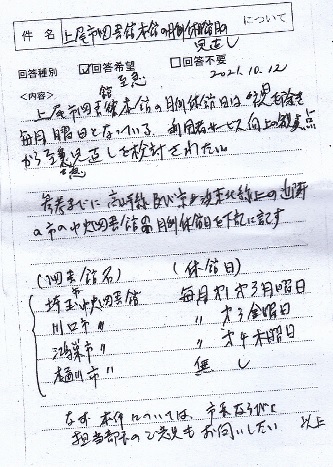 件名 上尾市図書館本館の月例休館日の見直し について
回答種別 ☑回答希望 □回答不要
至急 2021.10.12
<内容>
上尾市図書館本館の月例休館日は を除き
毎月曜日となっている。利用者サービス向上の観点
から至急見直しを検討されたい。
参考までに高崎線及び 東北線上の近隣
の市の中央図書館の月例休館日を下記に記す
(図書館名) (休館日)
埼玉 中央図書館 毎月オ1オ3月曜日
川口市 〃 〃 オ3金曜日
鴻巣市 〃 〃 オ4木曜日
桶川市 〃 無し
なお本件については、市長ならびに
担当部 のご意見もお伺いしたい 以上